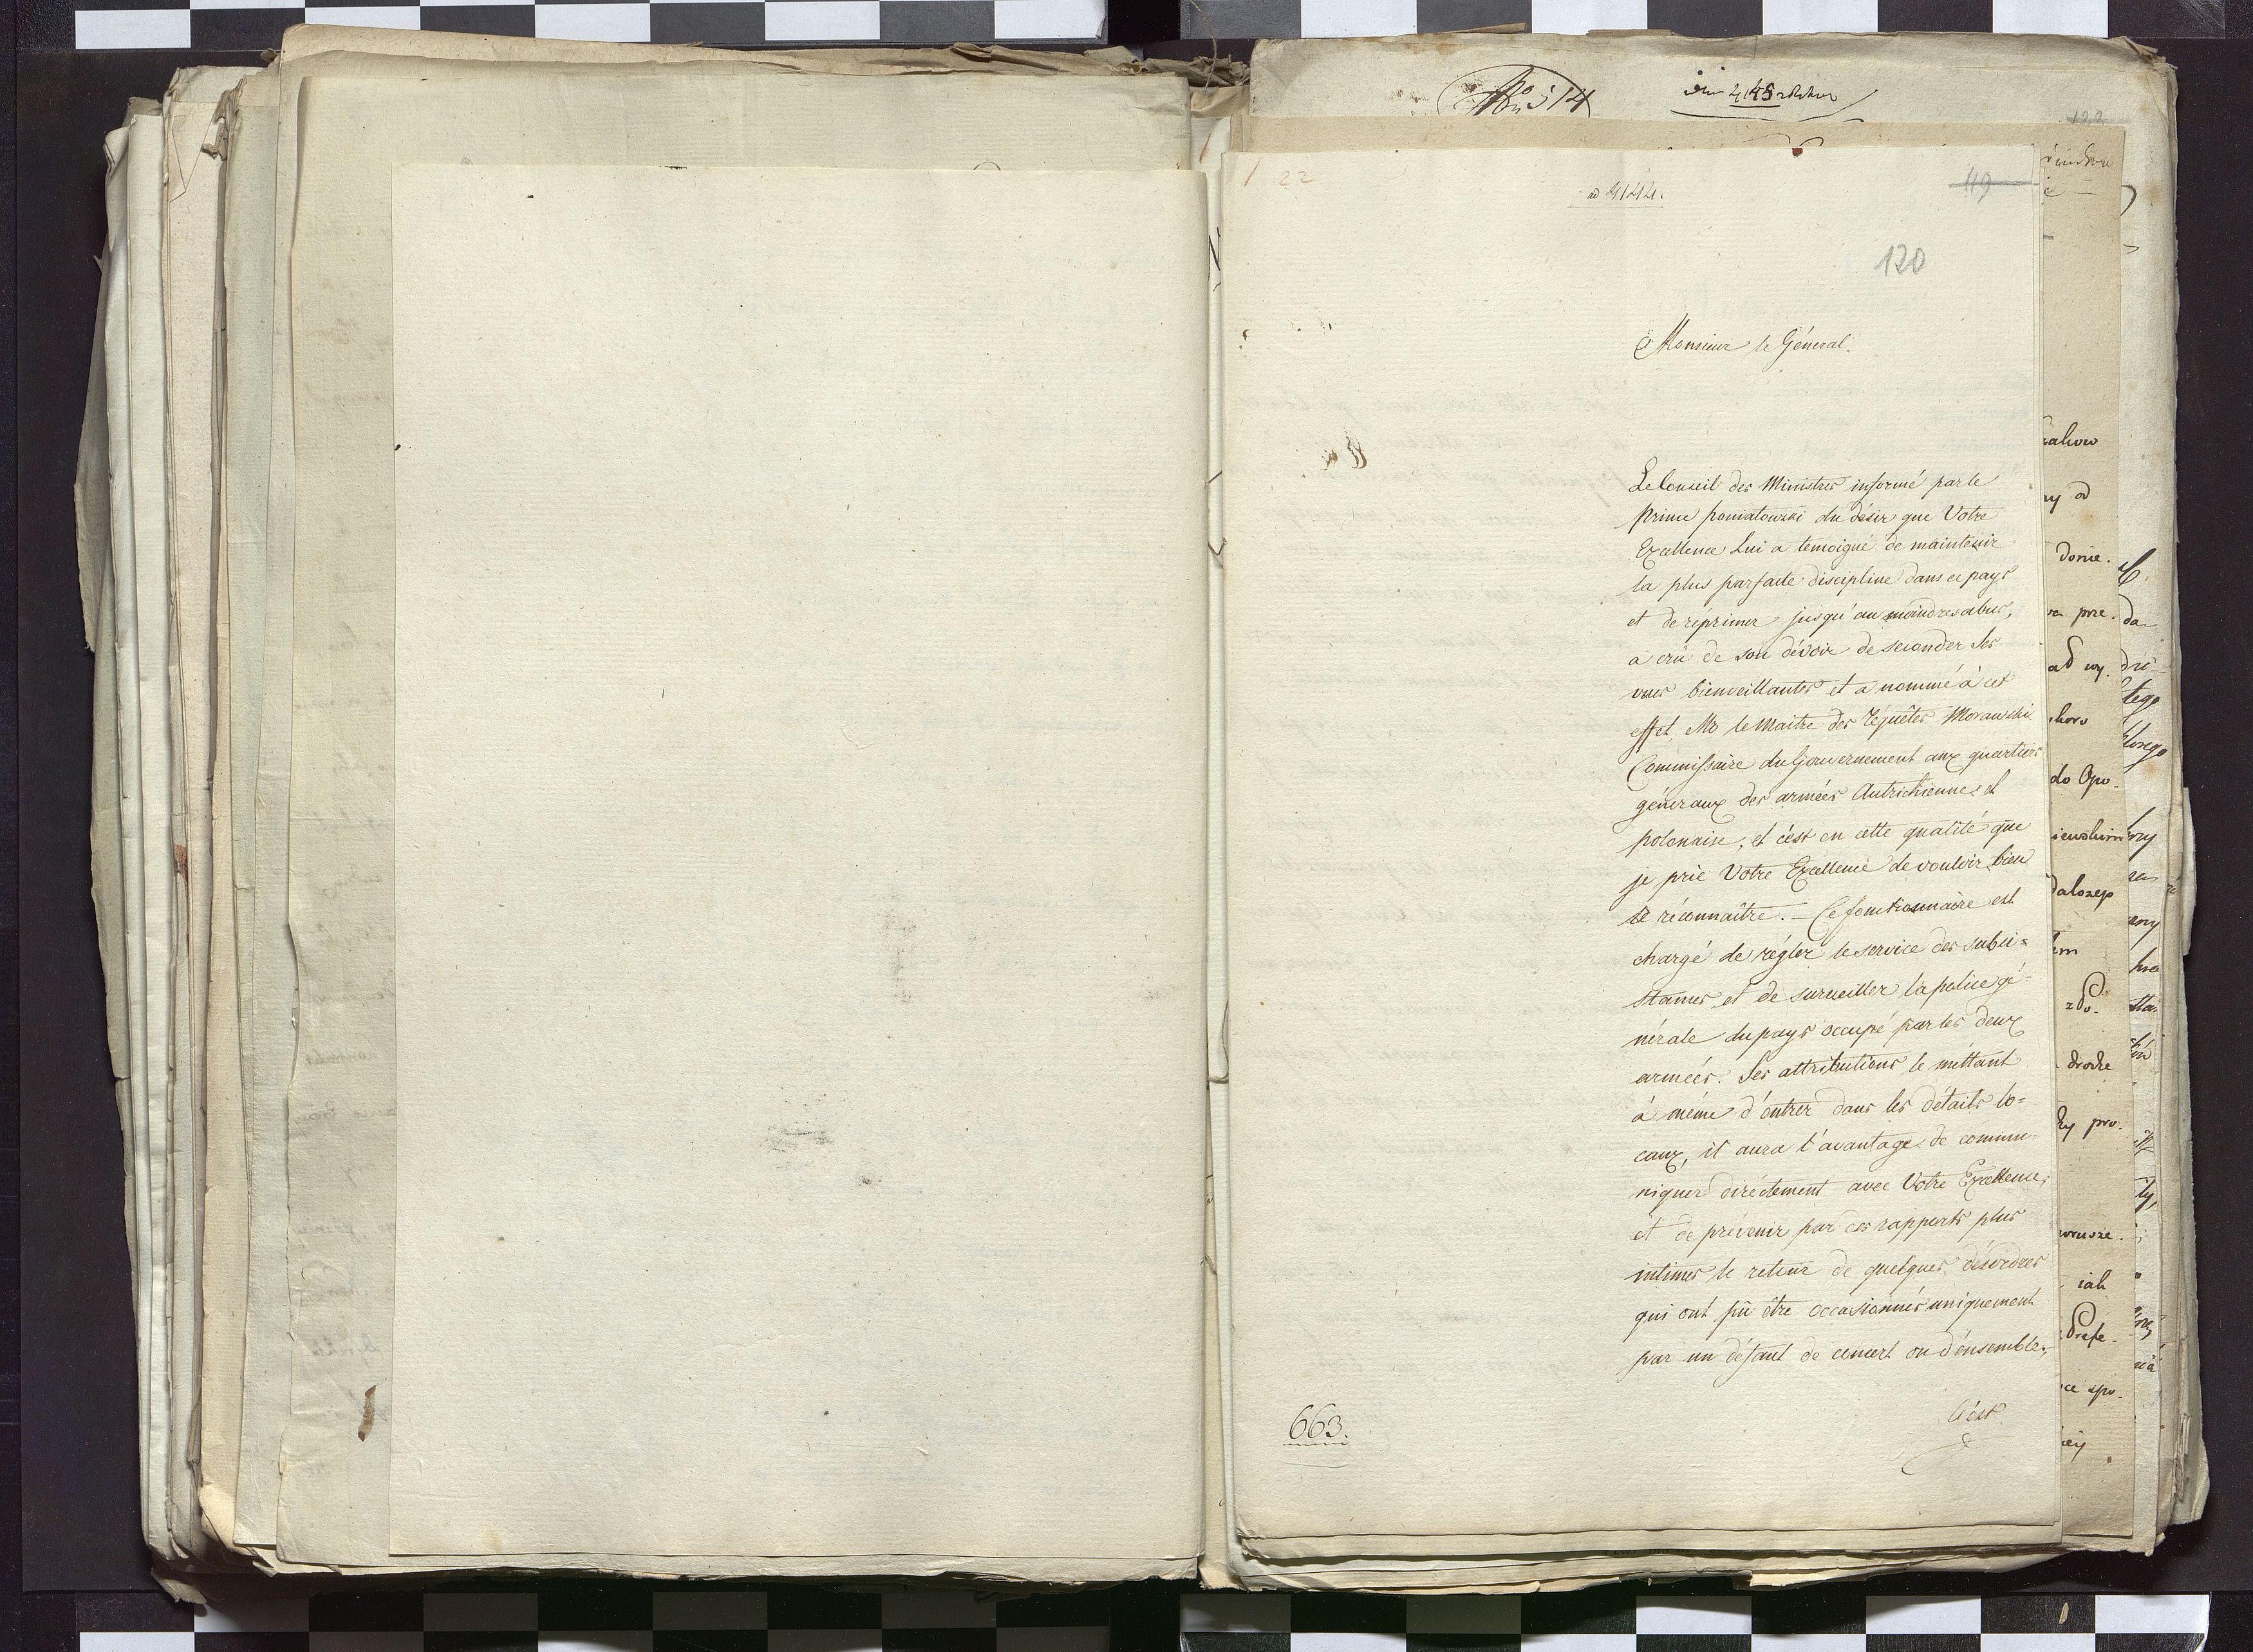 No 514
22
ad 4144.
119
120
Monsieur le Géneral.
Le Conseil des Ministres informé par le
Prince Poniatowski du désir que Votre
Excellence Lui a temoigné de maintenir
la plus parfaite discipline dans ce pays
et de réprimer jusqu'au moindres abus,
a crû de son dévoir de seconder Ses
vues bienveillantes et a nommé à cet
effet Mr le Maitre des réquêtes Morawski
Commissaire du Gouvernement aux quartiers
géneraux des armées Autrichienne et
polonaise, et c'ést en cette qualité que
je prie Votre Excellence de vouloir bien
le réconnaître. — Ce fonctionnaire est
chargé de régler le service des subsi=
stances et de surveiller la police gé=
nérale du pays occupé par les deux
armées. Ses attributions le méttant
à même d'entrer dans les détails lo=
caux, il aura l'avantage de commu=
niquer diréctement avec Votre Excellence,
et de prévenir par ces rapports plus
intimes le retour de quelques désordres
qui ont pû être occasionnés uniquement
par un défaut de concert ou d'ensemble.,
C'ést
663.
donie.
do Opo.
drodze
iak
Prefe.